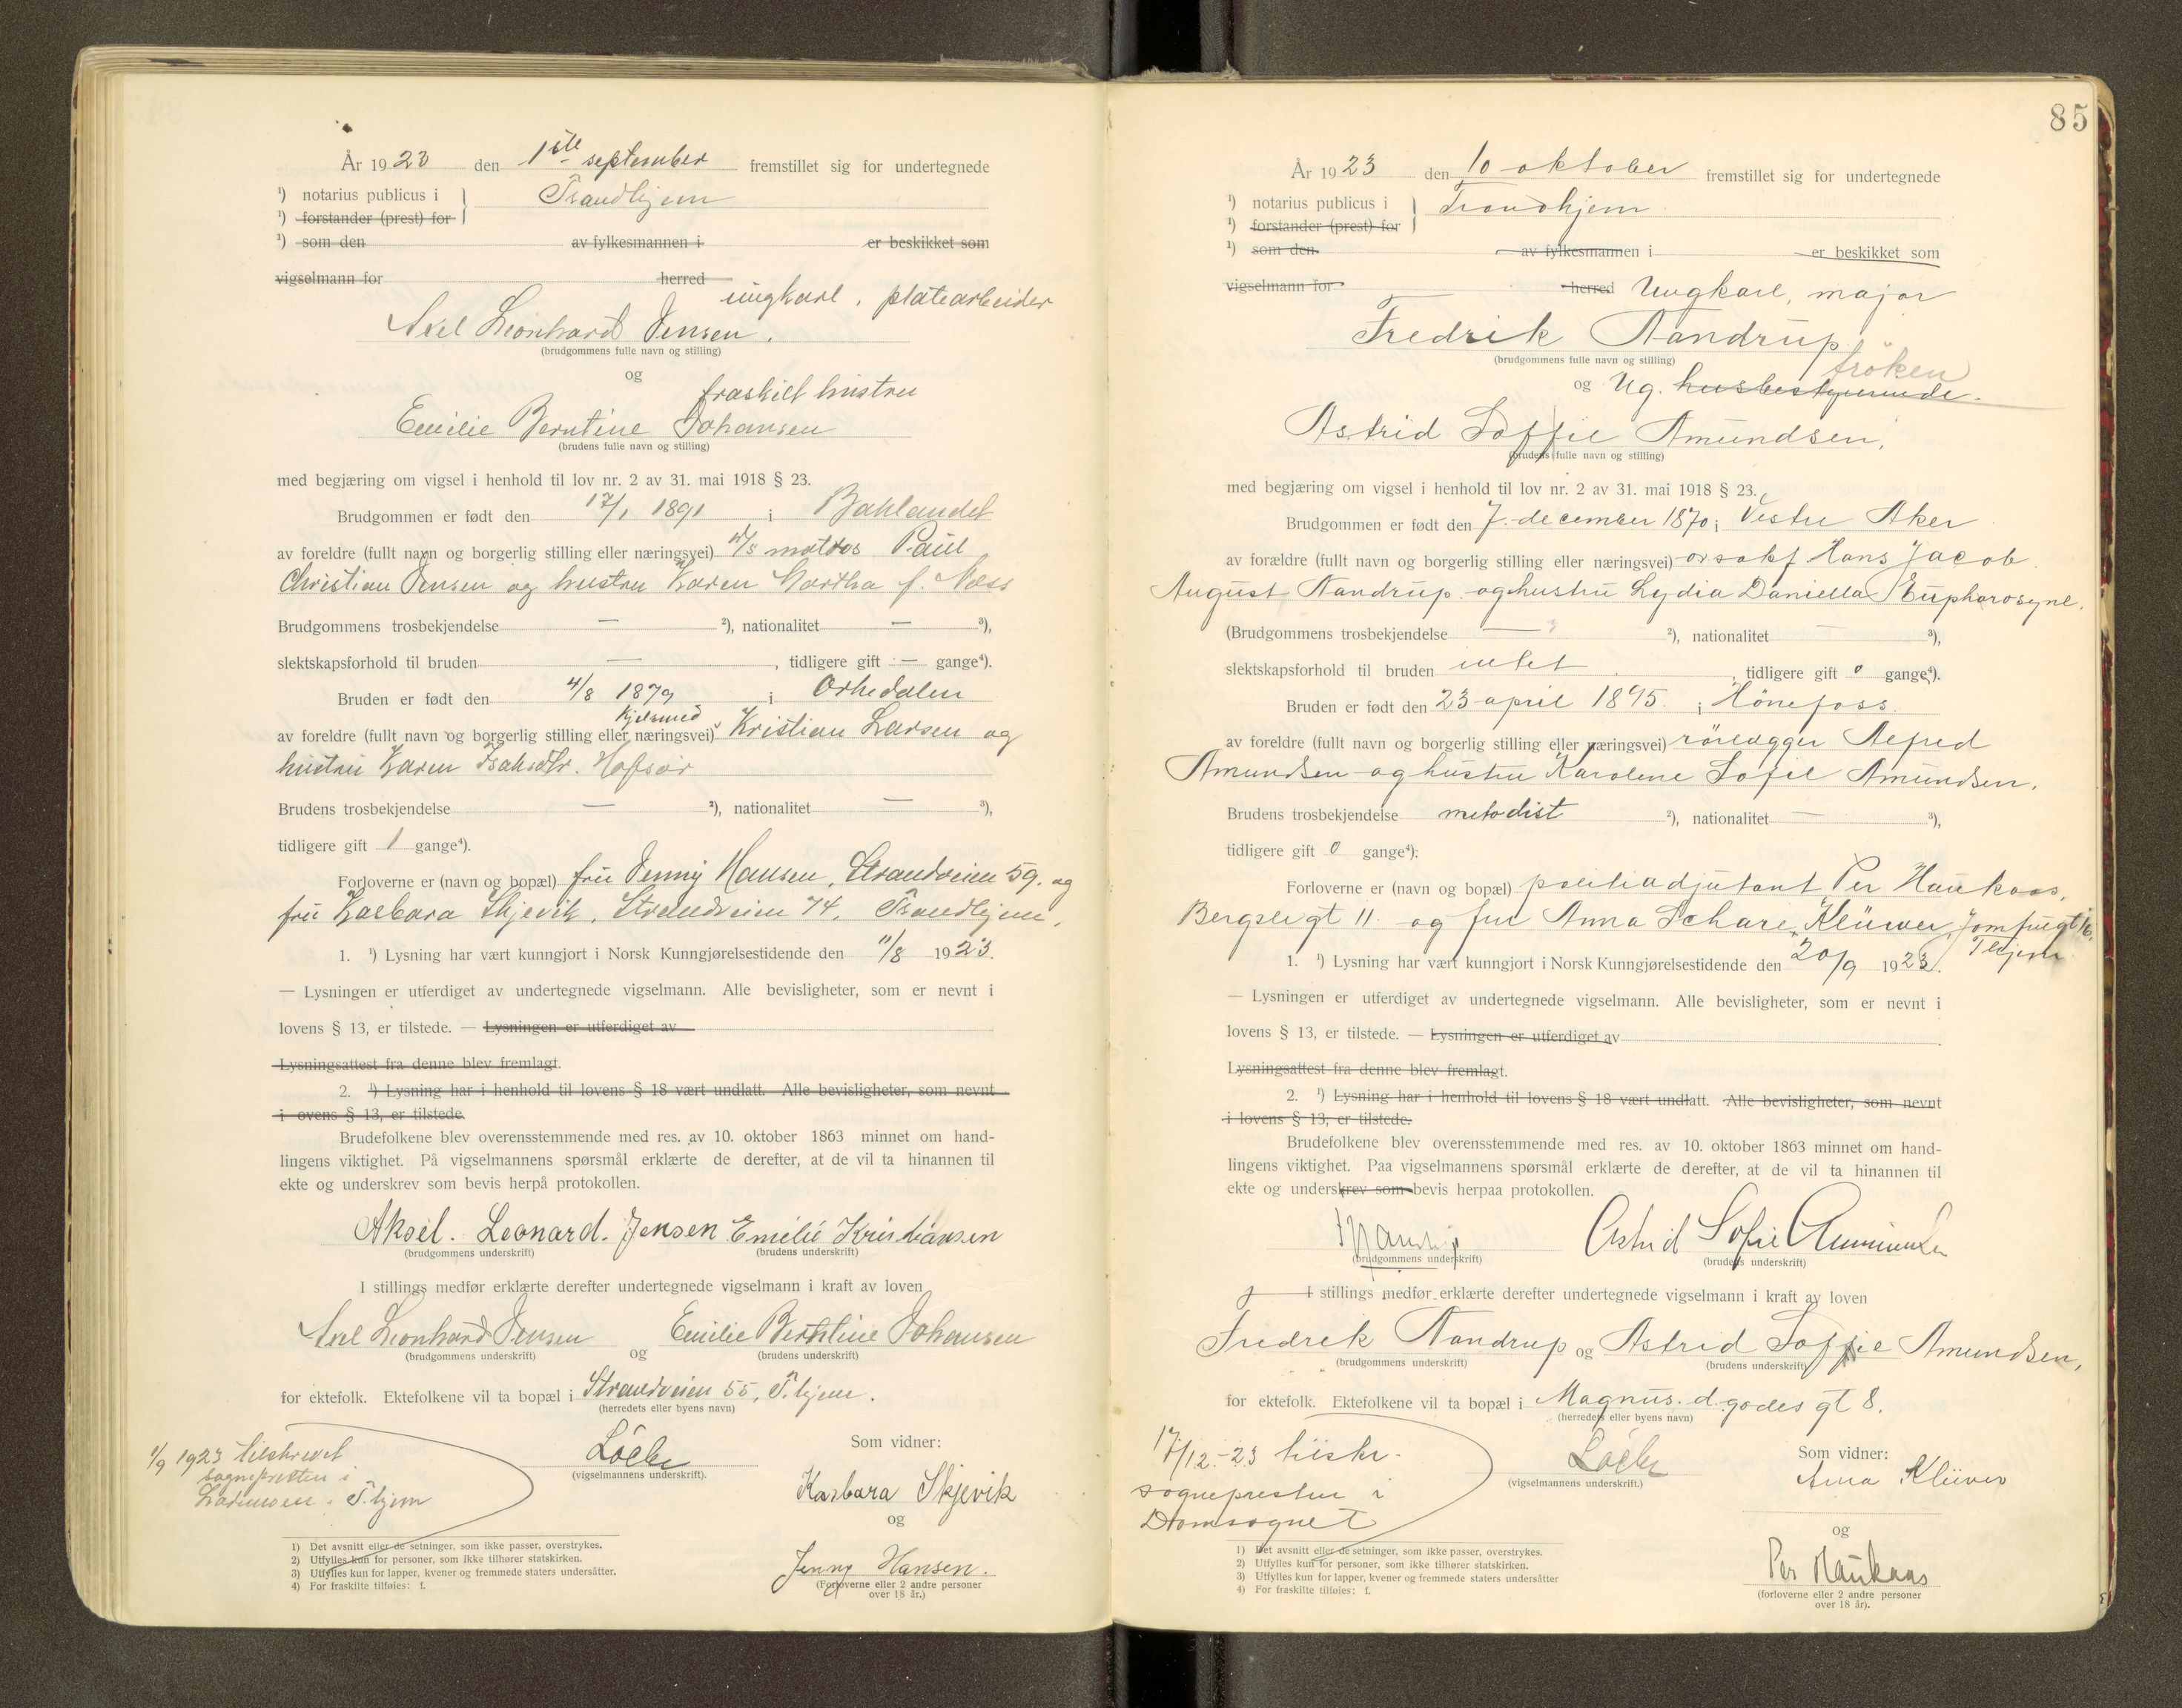 År 1923 den 1ste september fremstillet sig for undertegnede
¹) notarius publicus i } Trondhjem
¹) forstander (prest) for
¹) som den av fylkesmannen i er beskikket som
vigselmann for herred
ungkarl, platearbeider
Axel Leonhard Jensen.
(brudgommens fulle navn og stilling)
og
fraskilt hustru
Emilie Berntine Johansen
(brudens fulle navn og stilling)
med begjæring om vigsel i henhold til lov nr. 2 av 31. mai 1918 § 23.
Brudgommen er født den 17/1 1891 i Baklandet
av foreldre (fullt navn og borgerlig stilling eller næringsvei) matros Paul
Christian Jensen og hustru Karen Martha f. Næss
Brudgommens trosbekjendelse — ²), nationalitet — ³),
slektskapsforhold til bruden —, tidligere gift — gange⁴).
Bruden er født den 4/8 1879 i Orkedalen
kjelsmed
av foreldre (fullt navn og borgerlig stilling eller næringsvei) Kristian Larsen og
hustru Karen Isaksdtr. Hofsør
Brudens trosbekjendelse — ²), nationalitet — ³),
tidligere gift 1 gange⁴).
Forloverne er (navn og bopæl) fru Jenny Hansen, Strandveien 59. og
fru Karbara Skjevik, Strandveien 74, Trondhjem.
1. ¹) Lysning har vært kunngjort i Norsk Kunngjørelsestidende den 11/8 1923.
— Lysningen er utferdiget av undertegnede vigselmann. Alle bevisligheter, som er nevnt i
lovens § 13, er tilstede. — Lysningen er utferdiget av
Lysningsattest fra denne blev fremlagt.
2. ¹) Lysning har i henhold til lovens § 18 vært undlatt. Alle bevisligheter, som nevnt
i ovens § 13, er tilstede.
Brudefolkene blev overensstemmende med res. av 10. oktober 1863 minnet om hand-
lingens viktighet. På vigselmannens spørsmål erklærte de derefter, at de vil ta hinannen til
ekte og underskrev som bevis herpå protokollen.
Aksel. Leonard. Jensen Emilie Kristiansen
(brudgommens underskrift) (brudens underskrift)
I stillings medfør erklærte derefter undertegnede vigselmann i kraft av loven
Axel Leonhard Jensen og Emilie Berntine Johansen
(brudgommens underskrift) (brudens underskrift)
for ektefolk. Ektefolkene vil ta bopæl i Strandveien 55, T.hjem.
(herredets eller byens navn)
1/9 1923 tilskrevet
sognepresten i
Lademoen. T.hjem
(vigselmannens underskrift).
Som vidner:
Karbara Skjevik
og
Jenny Hansen.
(Forloverne eller 2 andre personer
over 18 år.)
1) Det avsnitt eller de setninger, som ikke passer, overstrykes.
2) Utfylles kun for personer, som ikke tilhører statskirken.
3) Utfylles kun for lapper, kvener og fremmede staters undersåtter.
4) For fraskilte tilføies: f.
85
År 1923 den 10 oktober fremstillet sig for undertegnede
¹) notarius publicus i } Trondhjem
¹) forstander (prest) for
¹) som den av fylkesmannen i er beskikket som
vigselmann for herred Ungkarl, major
Fredrik Nandrup
(brudgommens fulle navn og stilling)
frøken
og Ug. husbestyrerinde.
Astrid Soffie Amundsen,
(brudens fulle navn og stilling)
med begjæring om vigsel i henhold til lov nr. 2 av 31. mai 1918 § 23.
Brudgommen er født den 7. december 1870 i Vestre Aker
av forældre (fullt navn og borgerlig stilling eller næringsvei) orsakf Hans Jacob
August Nandrup og hustru Lydia Daniella Eupharosyne.
(Brudgommens trosbekjendelse — ²), nationalitet — ³),
slektskapsforhold til bruden intet, tidligere gift 0 gange⁴).
Bruden er født den 23 april 1895. i Hönefoss.
av foreldre (fullt navn og borgerlig stilling eller næringsvei) rörlægger Alfred
Amundsen og hustru Karolene Sofie Amundsen.
Brudens trosbekjendelse metodist ²), nationalitet — ³),
tidligere gift 0 gange⁴).
Forloverne er (navn og bopæl) politiadjutant Per Haukaas,
Bergsligt 11. og fru Anna Klüwer, Jomfrugt 16,
T.hjem
1. ¹) Lysning har vært kunngjort i Norsk Kunngjørelsestidende den 20/9 1923.
— Lysningen er utferdiget av undertegnede vigselmann. Alle bevisligheter, som er nevnt i
lovens § 13, er tilstede. — Lysningen er utferdiget av
Lysningsattest fra denne blev fremlagt.
2. ¹) Lysning har i henhold til lovens § 18 vært undlatt. Alle bevisligheter, som nevnt
i lovens § 13, er tilstede.
Brudefolkene blev overensstemmende med res. av 10. oktober 1863 minnet om hand-
lingens viktighet. Paa vigselmannens spørsmål erklærte de derefter, at de vil ta hinannen til
ekte og underskrev som bevis herpaa protokollen.
Astrid Sofie Amundsen
(brudgommens underskrift) (brudens underskrift)
I stillings medfør erklærte derefter undertegnede vigselmann i kraft av loven
Fredrik Nandrup og Astrid Soffie Amundsen,
(brudgommens underskrift) (brudens underskrift)
for ektefolk. Ektefolkene vil ta bopæl i Magnus d. godes gt 8.
(herredets eller byens navn)
17/12-23 tilskr.
sognepresten i
Domsognet
(vigselmannens underskrift.)
Som vidner:
Anna Klüver
og
Per Haukaas
(forloverne eller 2 andre personer
over 18 år).
1) Det avsnitt eller de setninger, som ikke passer, overstrykes.
2) Utfylles kun for personer, som ikke tilhører statskirken.
3) Utfylles kun for lapper, kvener og fremmede staters undersåtter
4) For fraskilte tilføies: f.